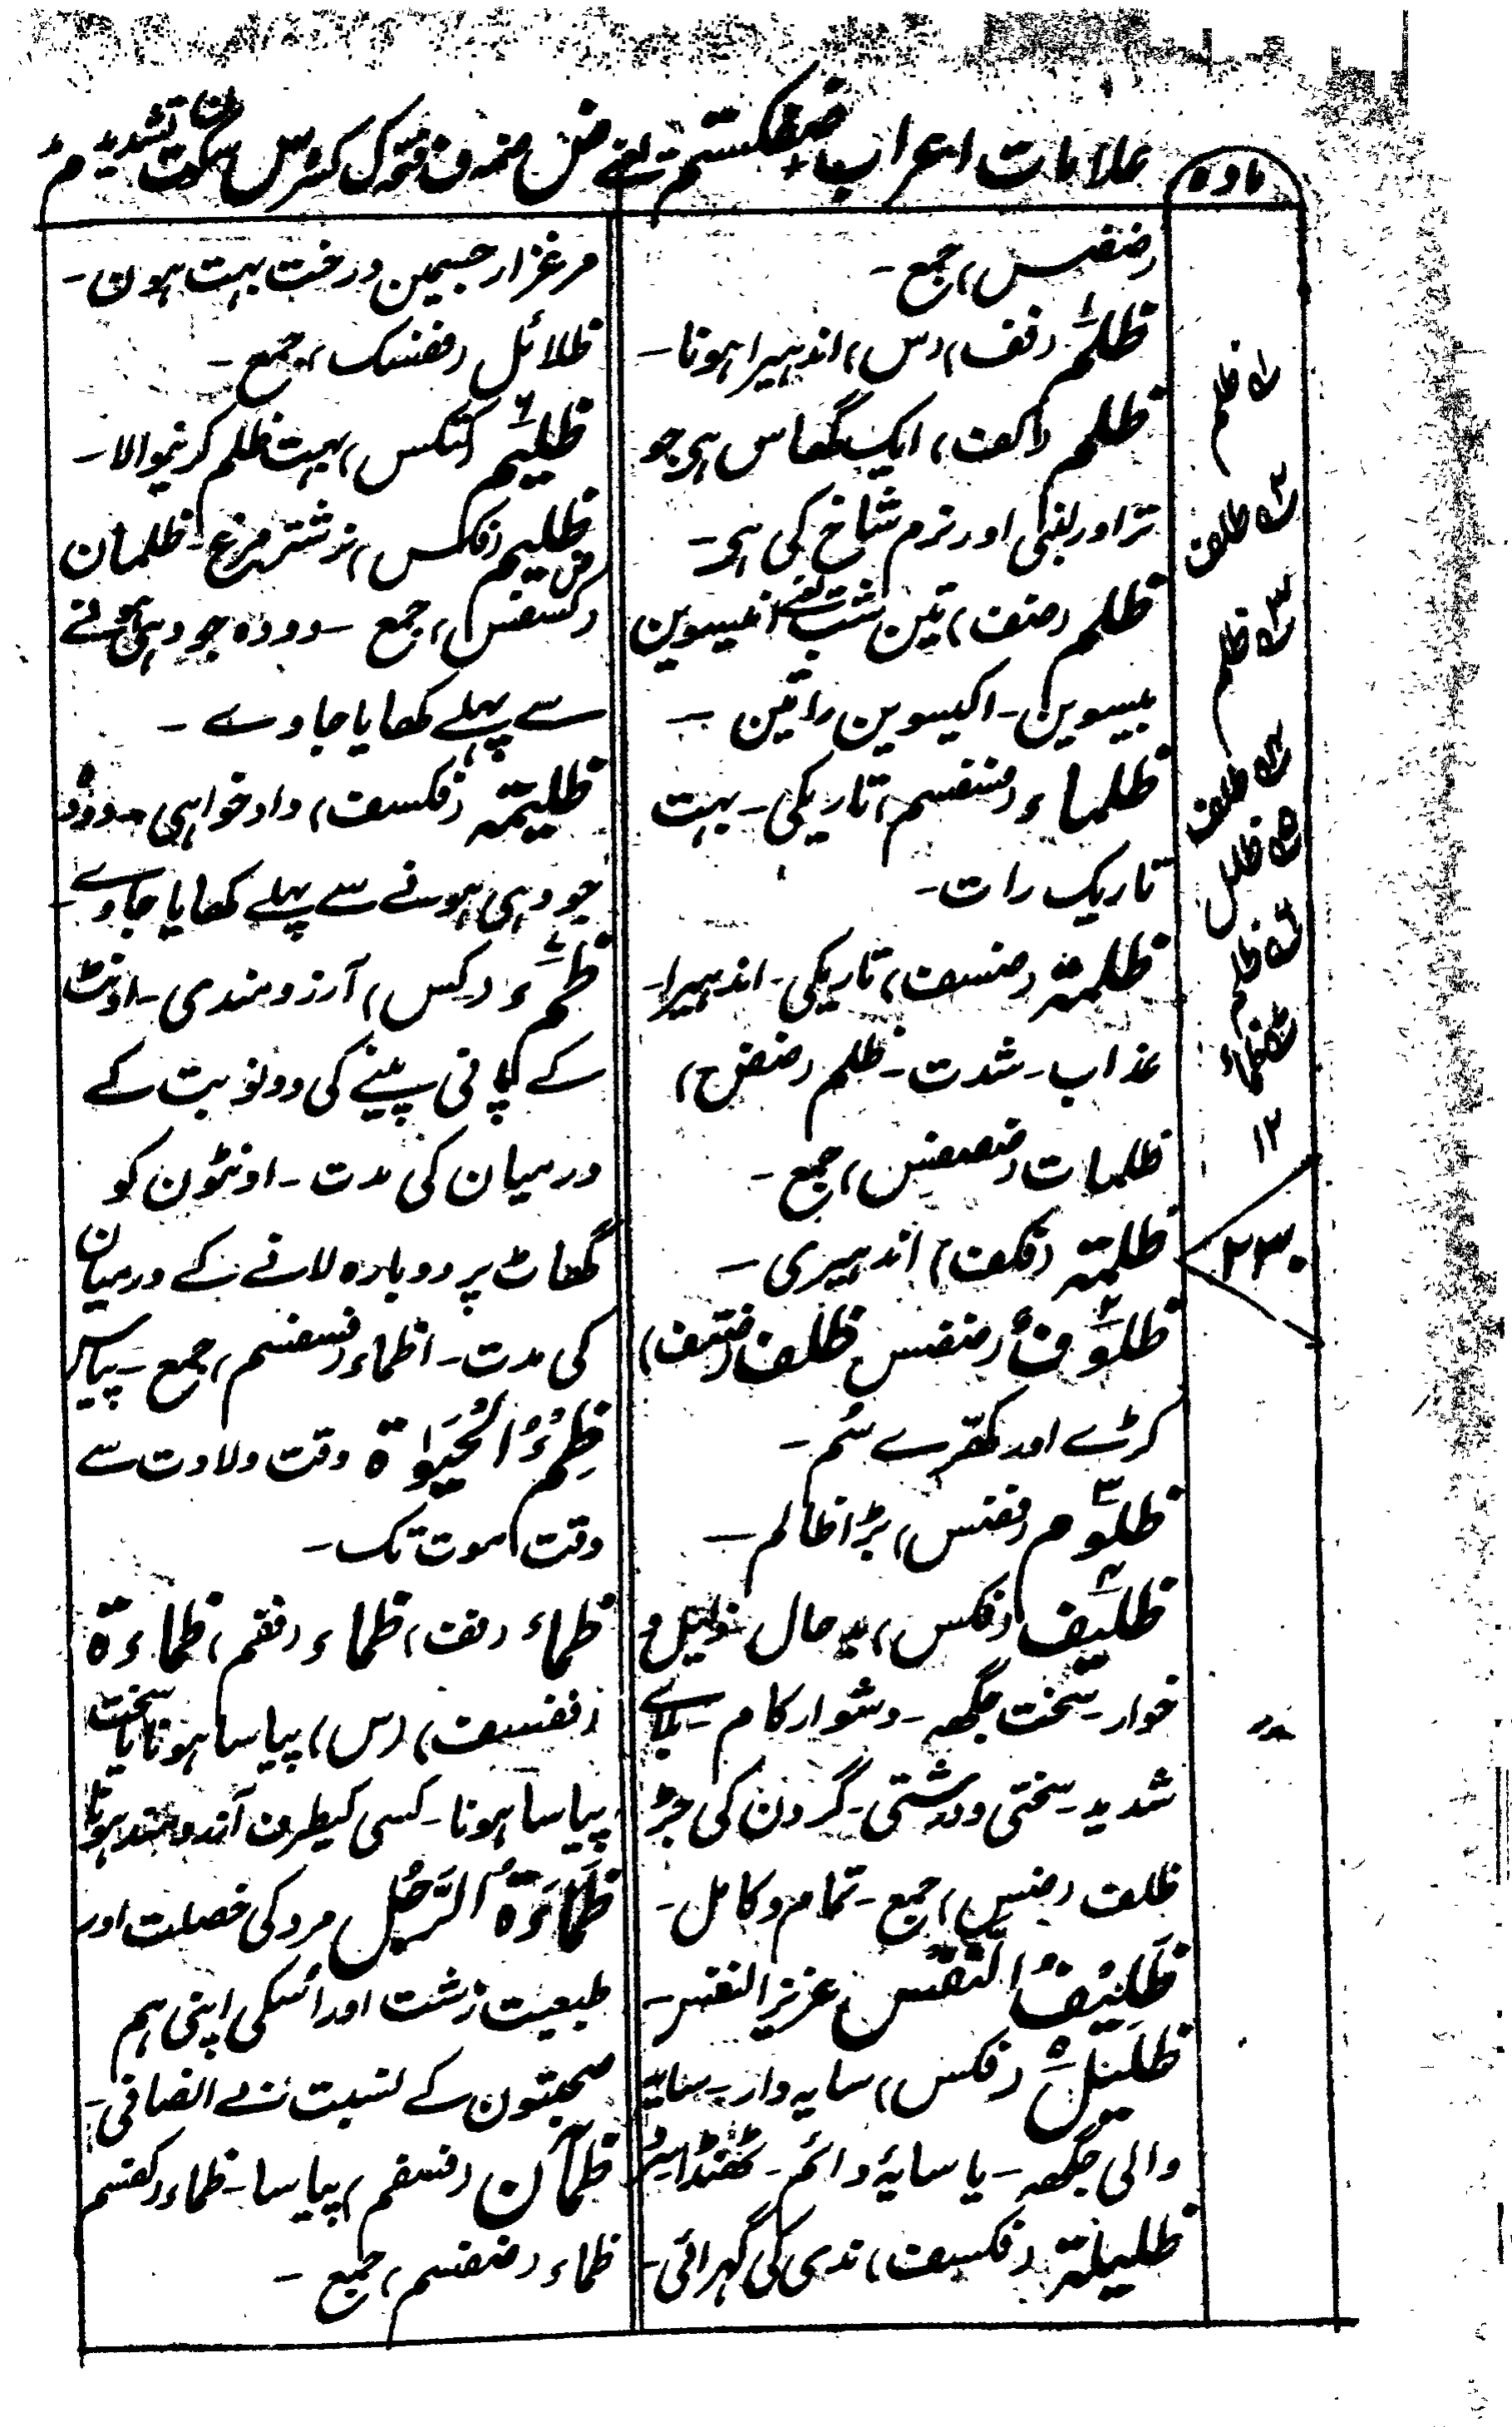 علامات اعراب ضفکستم یعنے ض ضمہ ف فتحہ ک کسرہ س سکون ت تشدید م مد
مادہ
(ضفس) جمع ۔
ظلم (فف) (س) اندہیرا ہونا ۔
ظلم (کف) ایک گھاس ہی جو
تر اور لنبی اور نرم شاخ کی ہی ۔
ظلم (ضف) تین شب یعنے انیسوین
بیسوین ۔ اکیسوین راتین ۔
ظلماء (فسفسم) تاریکی ۔ بہت
تاریک رات ۔
ظلمة (ضسف) تاریکی ۔ اندہیرا ۔
عذاب ۔ شدت ۔ ظلم (ضف) ج
ظلمات (ضضفس) جمع ۔
ظلمة (فکف) اندہیری ۔
ظلوف (ضضس) ظلف (ضتف)
کڑے اور کھرّے سُم ۔
ظلوم (فضس) بڑا ظالم ۔
ظلیف (فکس) بد حال ذلیل و
خوار ۔ سخت جگھہ ۔ دشوار کام ۔ بلاے
شدید ۔ سختی و درشتی ۔ گردن کی جڑ
ظلف (ضس) جمع ۔ تمام و کامل ۔
ظَلِیْفُ النَّفْس عزیز النفس ۔
ظلیل (فکس) سایہ دار ۔ سایہ
والی جگھہ ۔ یا سایۂ دائم ۔ ٹھنڈا
ظلیلة (فکسف) ندی کی گہرائی ۔
مرغزار جسمین درخت بہت ہون ۔
ظلائل (ففسک) جمع ۔
ظلیم (کتکس) بہت ظلم کرنیوالا ۔
ظلیم (فکس) نر شتر مرغ ۔ ظلمان
(کسفس) جمع ۔ دودہ جو دہی ہونے
سے پہلے کھایا جاوے ۔
ظلیمة (فکسف) دادخواہی ۔ دودہ
جو دہی ہونے سے پہلے کھایا جاوے ۔
ظمء (کس) آرزومندی ۔ اونٹ
کے پانی پینے کی دو نوبت کے
درمیان کی مدت ۔ اونٹون کو
گھاٹ پر دوبارہ لانے کے درمیان
کی مدت ۔ اظماء (فسفسم) جمع ۔ پیاس
ظِمْءُ الْحَیٰوة وقت ولادت سے
وقت موت تک ۔
ظماء (فف) ظماء (ففم) ظماءة
(ففسف) (س) پیاسا ہونا یا سخت
پیاسا ہونا ۔ کسی کیطرف آرزومند ہونا
ظَمَاءَةُ الرَّجُل مرد کی خصلت اور
طبیعت زشت اور اُسکی اپنی ہم
صحبتون کے نسبت بے انصافی ۔
ظمآن (فسفم) پیاسا ۔ ظماء (کفسم)
ظماء (ضفسم) جمع ۔
۱؎ ظلم
۲؎ ظلف
۳؎ ظلم
۴؎ ظلف
۵؎ ظلل
۶؎ ظلم
۷؎ ظماء
۱۲
۲۳۰